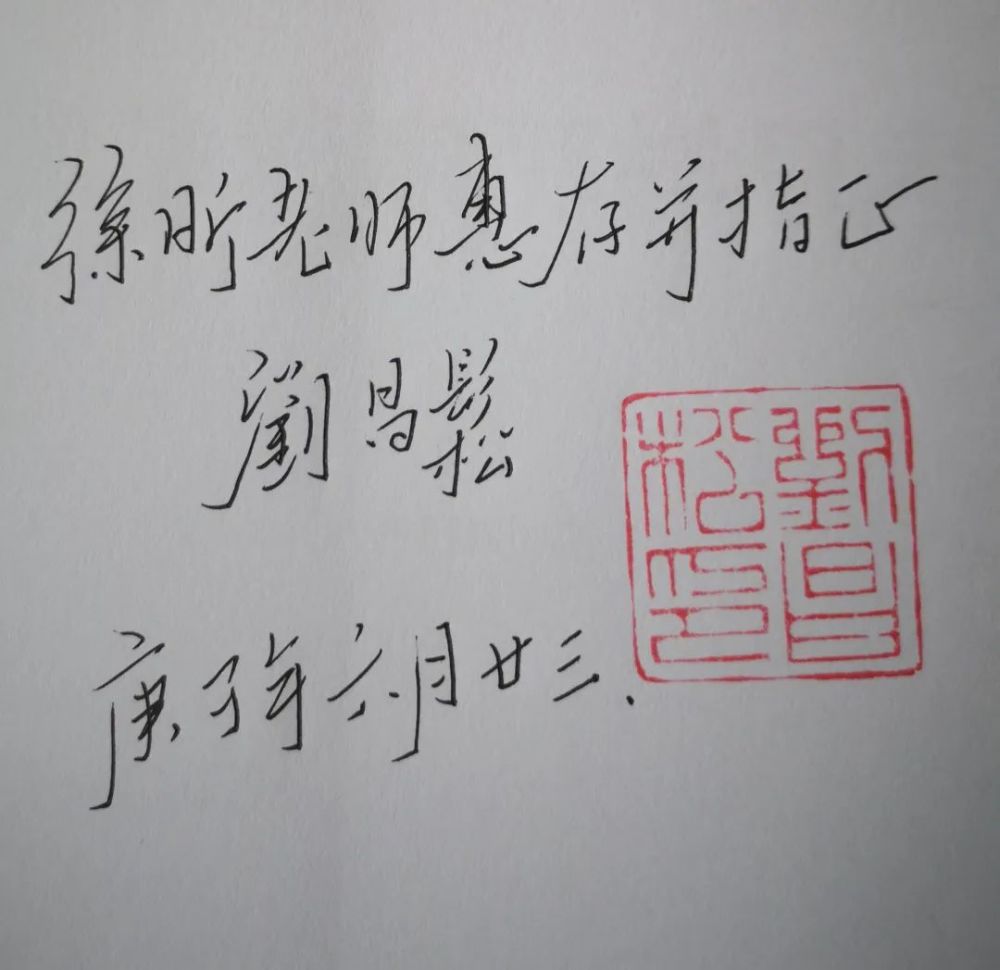 徐昕老师惠存并指正
劉昌鬆
庚子年六月廿三.
劉昌松印